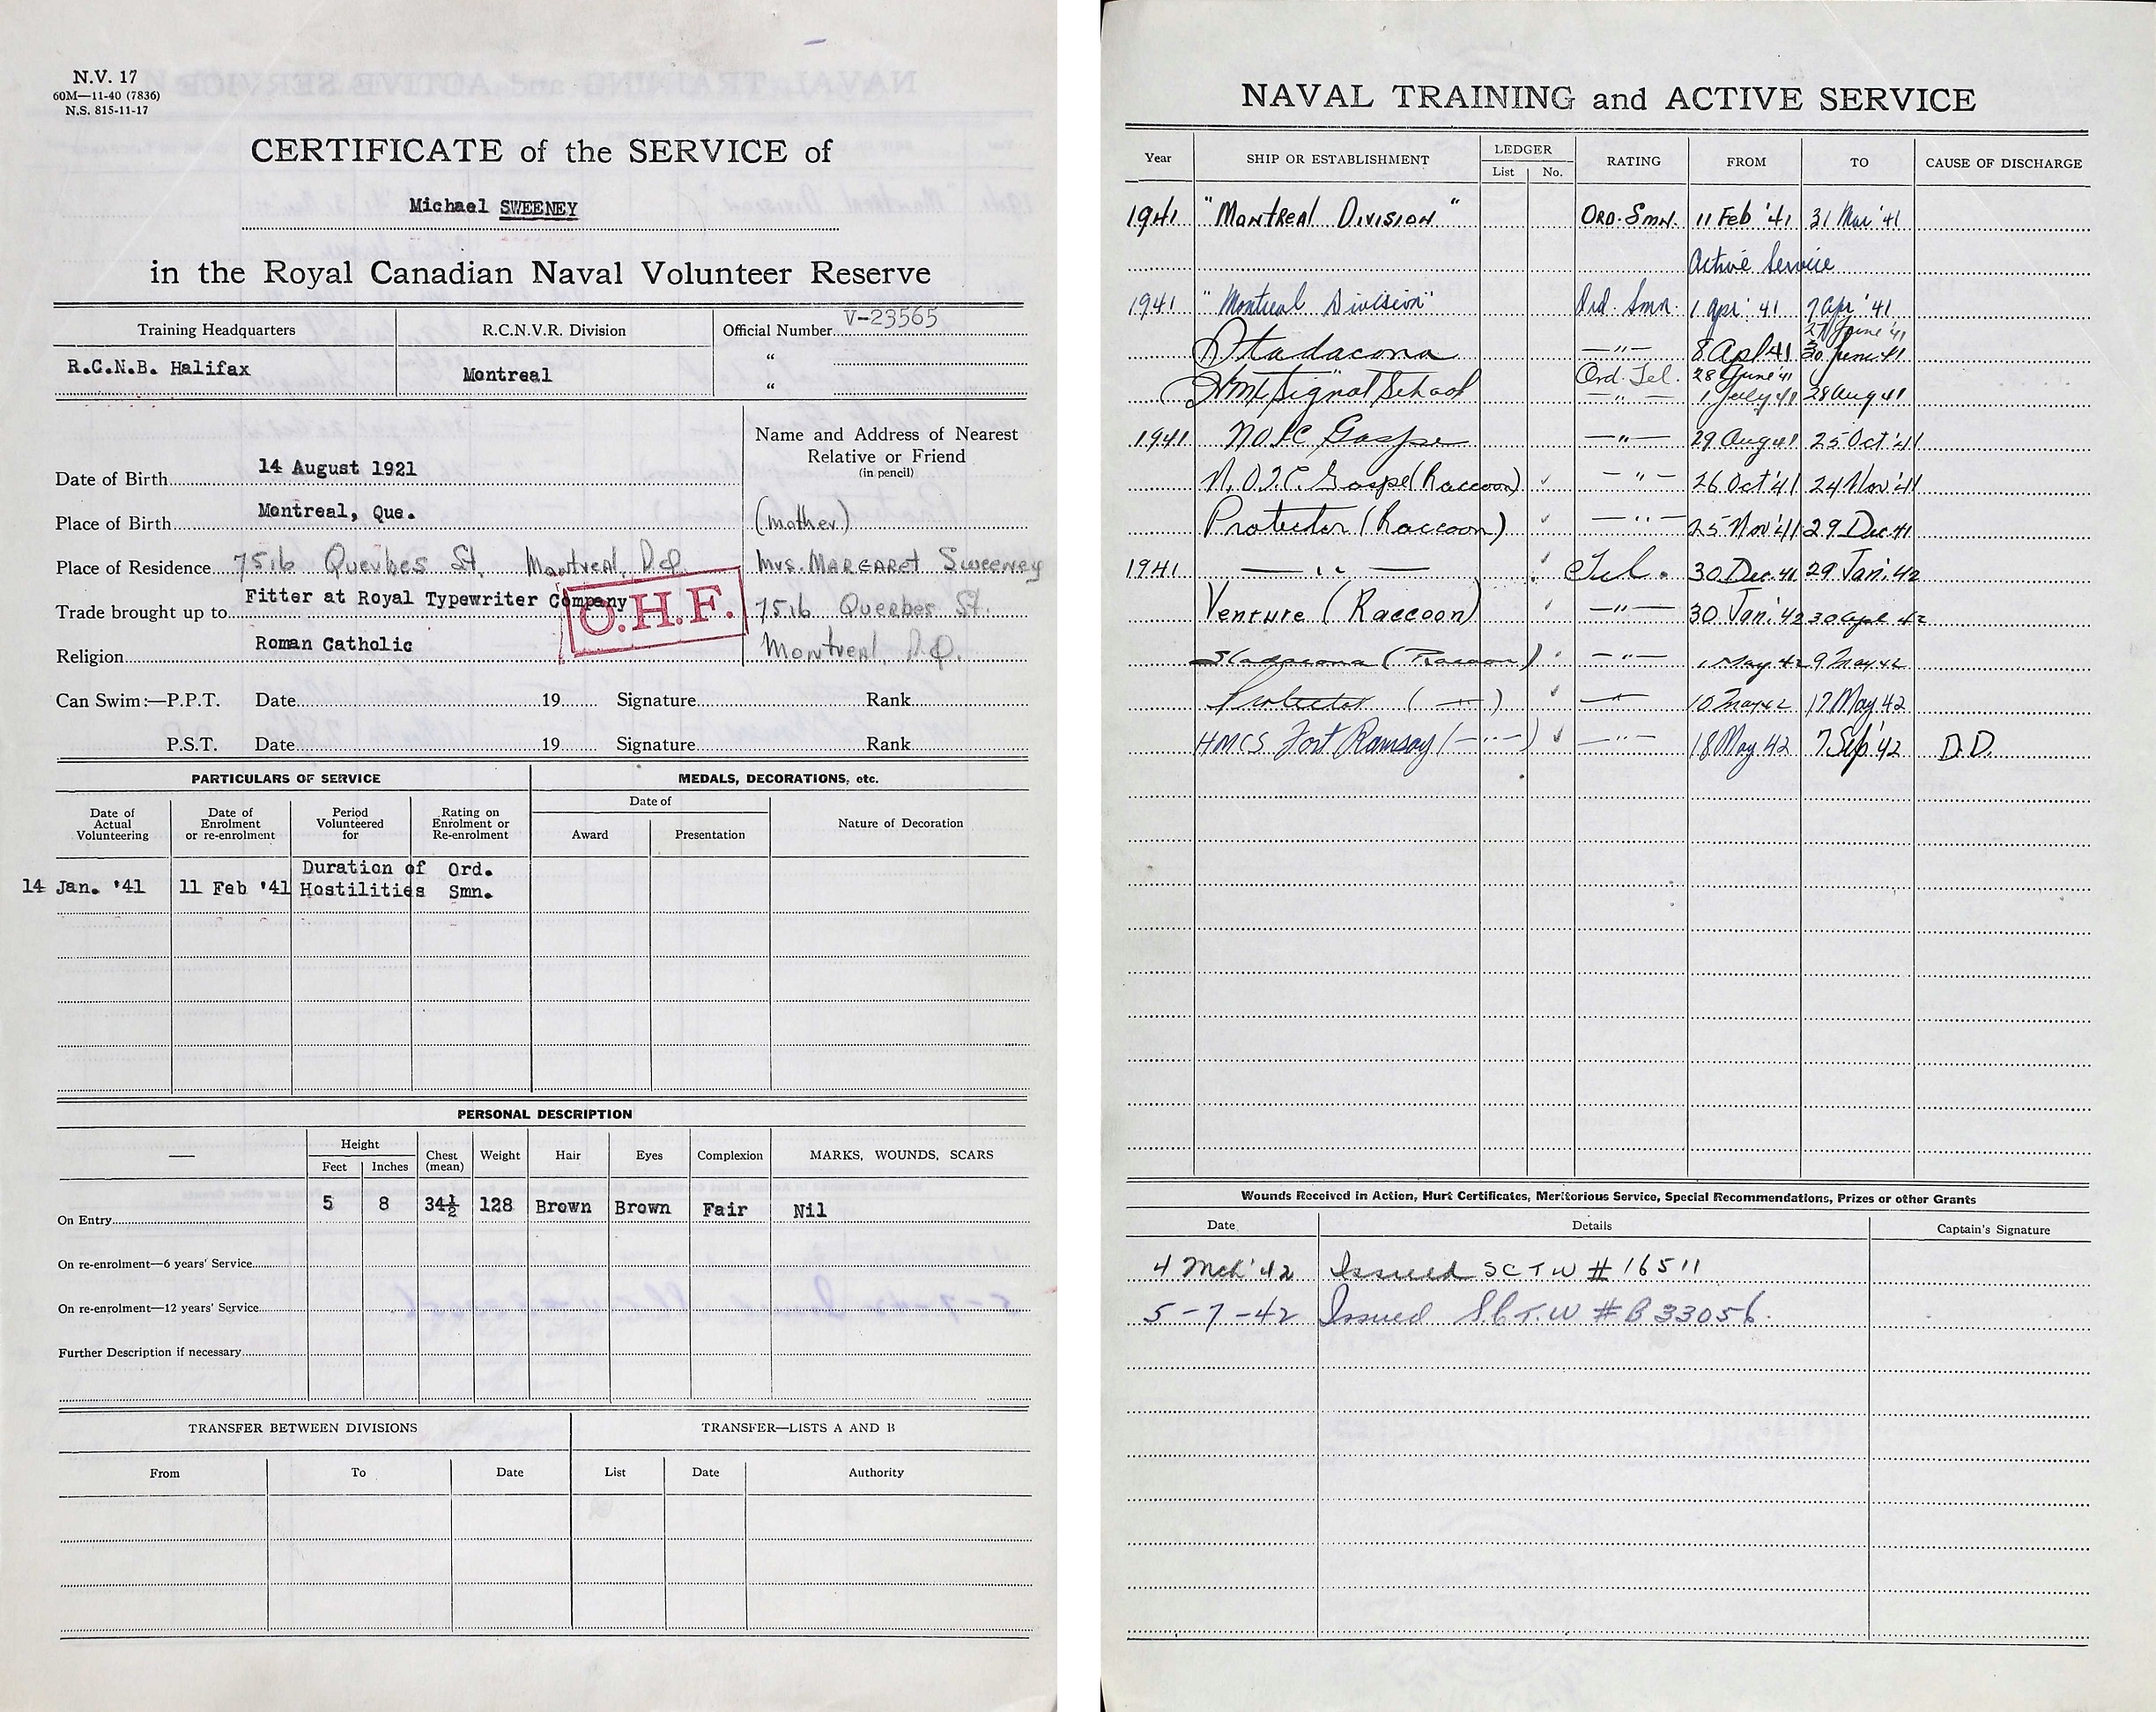 N.V. 17
60M—11-40 (7836)
N.S. 815-11-17
CERTIFICATE of the SERVICE of
Michael SWEENEY
in the Royal Canadian Naval Volunteer Reserve
Training Headquarters R.C.N.V.R. Division Official Number V-23565
R.C.N.B. Halifax Montreal "
"
Name and Address of Nearest
Relative or Friend
(in pencil)
Date of Birth 14 August 1921
Place of Birth Montreal, Que. (Mother)
Place of Residence 7516 Querbes St, Montreal, P.Q. Mrs. MARGARET Sweeney
Trade brought up to Fitter at Royal Typewriter Company O.H.F. 7516 Querbes St.
Religion Roman Catholic Montreal, P.Q.
Can Swim:—P.P.T. Date 19 Signature Rank
P.S.T. Date 19 Signature Rank
PARTICULARS OF SERVICE MEDALS, DECORATIONS, etc.
Date of Actual Volunteering Date of Enrolment or re-enrolment Period Volunteered for Rating on Enrolment or Re-enrolment Date of Award Presentation Nature of Decoration
14 Jan. '41 11 Feb '41 Duration of Hostilities Ord. Smn.
PERSONAL DESCRIPTION
— Height Feet Inches Chest (mean) Weight Hair Eyes Complexion MARKS, WOUNDS, SCARS
On Entry 5 8 34½ 128 Brown Brown Fair Nil
On re-enrolment—6 years' Service
On re-enrolment—12 years' Service
Further Description if necessary
TRANSFER BETWEEN DIVISIONS TRANSFER—LISTS A AND B
From To Date List Date Authority
NAVAL TRAINING and ACTIVE SERVICE
Year SHIP OR ESTABLISHMENT LEDGER List No. RATING FROM TO CAUSE OF DISCHARGE
1941 "Montreal Division" Ord. Smn. 11 Feb '41 31 Mar '41
Active Service
1941 "Montreal Division" Ord. Smn. 1 Apr '41 7 Apr '41
27 June 41
Stadacona —"— 8 Apl 41 30 June 41
Ord. Tel. 28 June '41
Signal School —"— 1 July 41 28 Aug 41
1941 NOIC Gaspe —"— 29 Aug 41 25 Oct '41
N.O.I.C. Gaspe (Raccoon) ✓ —"— 26 Oct '41 24 Nov '41
Protector (Raccoon) ✓ —"— 25 Nov '41 29 Dec 41
1941 —"— ✓ Tel. 30 Dec. 41 29 Jan. '42
Venture (Raccoon) ✓ —"— 30 Jan. '42 30 Apl 42
Stadacona (Raccoon) —"— 1 May 42 9 May 42
Protector (—"—) ✓ —"— 10 May 42 17 May 42
HMCS Fort Ramsay (—"—) ✓ —"— 18 May 42 7 Sep '42 D.D.
Wounds Received in Action, Hurt Certificates, Meritorious Service, Special Recommendations, Prizes or other Grants
Date Details Captain's Signature
4 Mch '42 Issued SCTW # 16511
5-7-42 Issued S.C.T.W # B 33056.